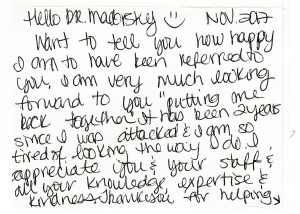 Hello DR. Madorsky ☺ NOV. 2017
Want to tell you how happy
I am to have been referred to
you, I am very much looking
forward to you "putting me
back together". It has been 2 years
since I was attacked & I am so
tired of looking the way I do. I
appreciate you & your staff &
all your knowledge, expertise &
kindness. Thank you for helping